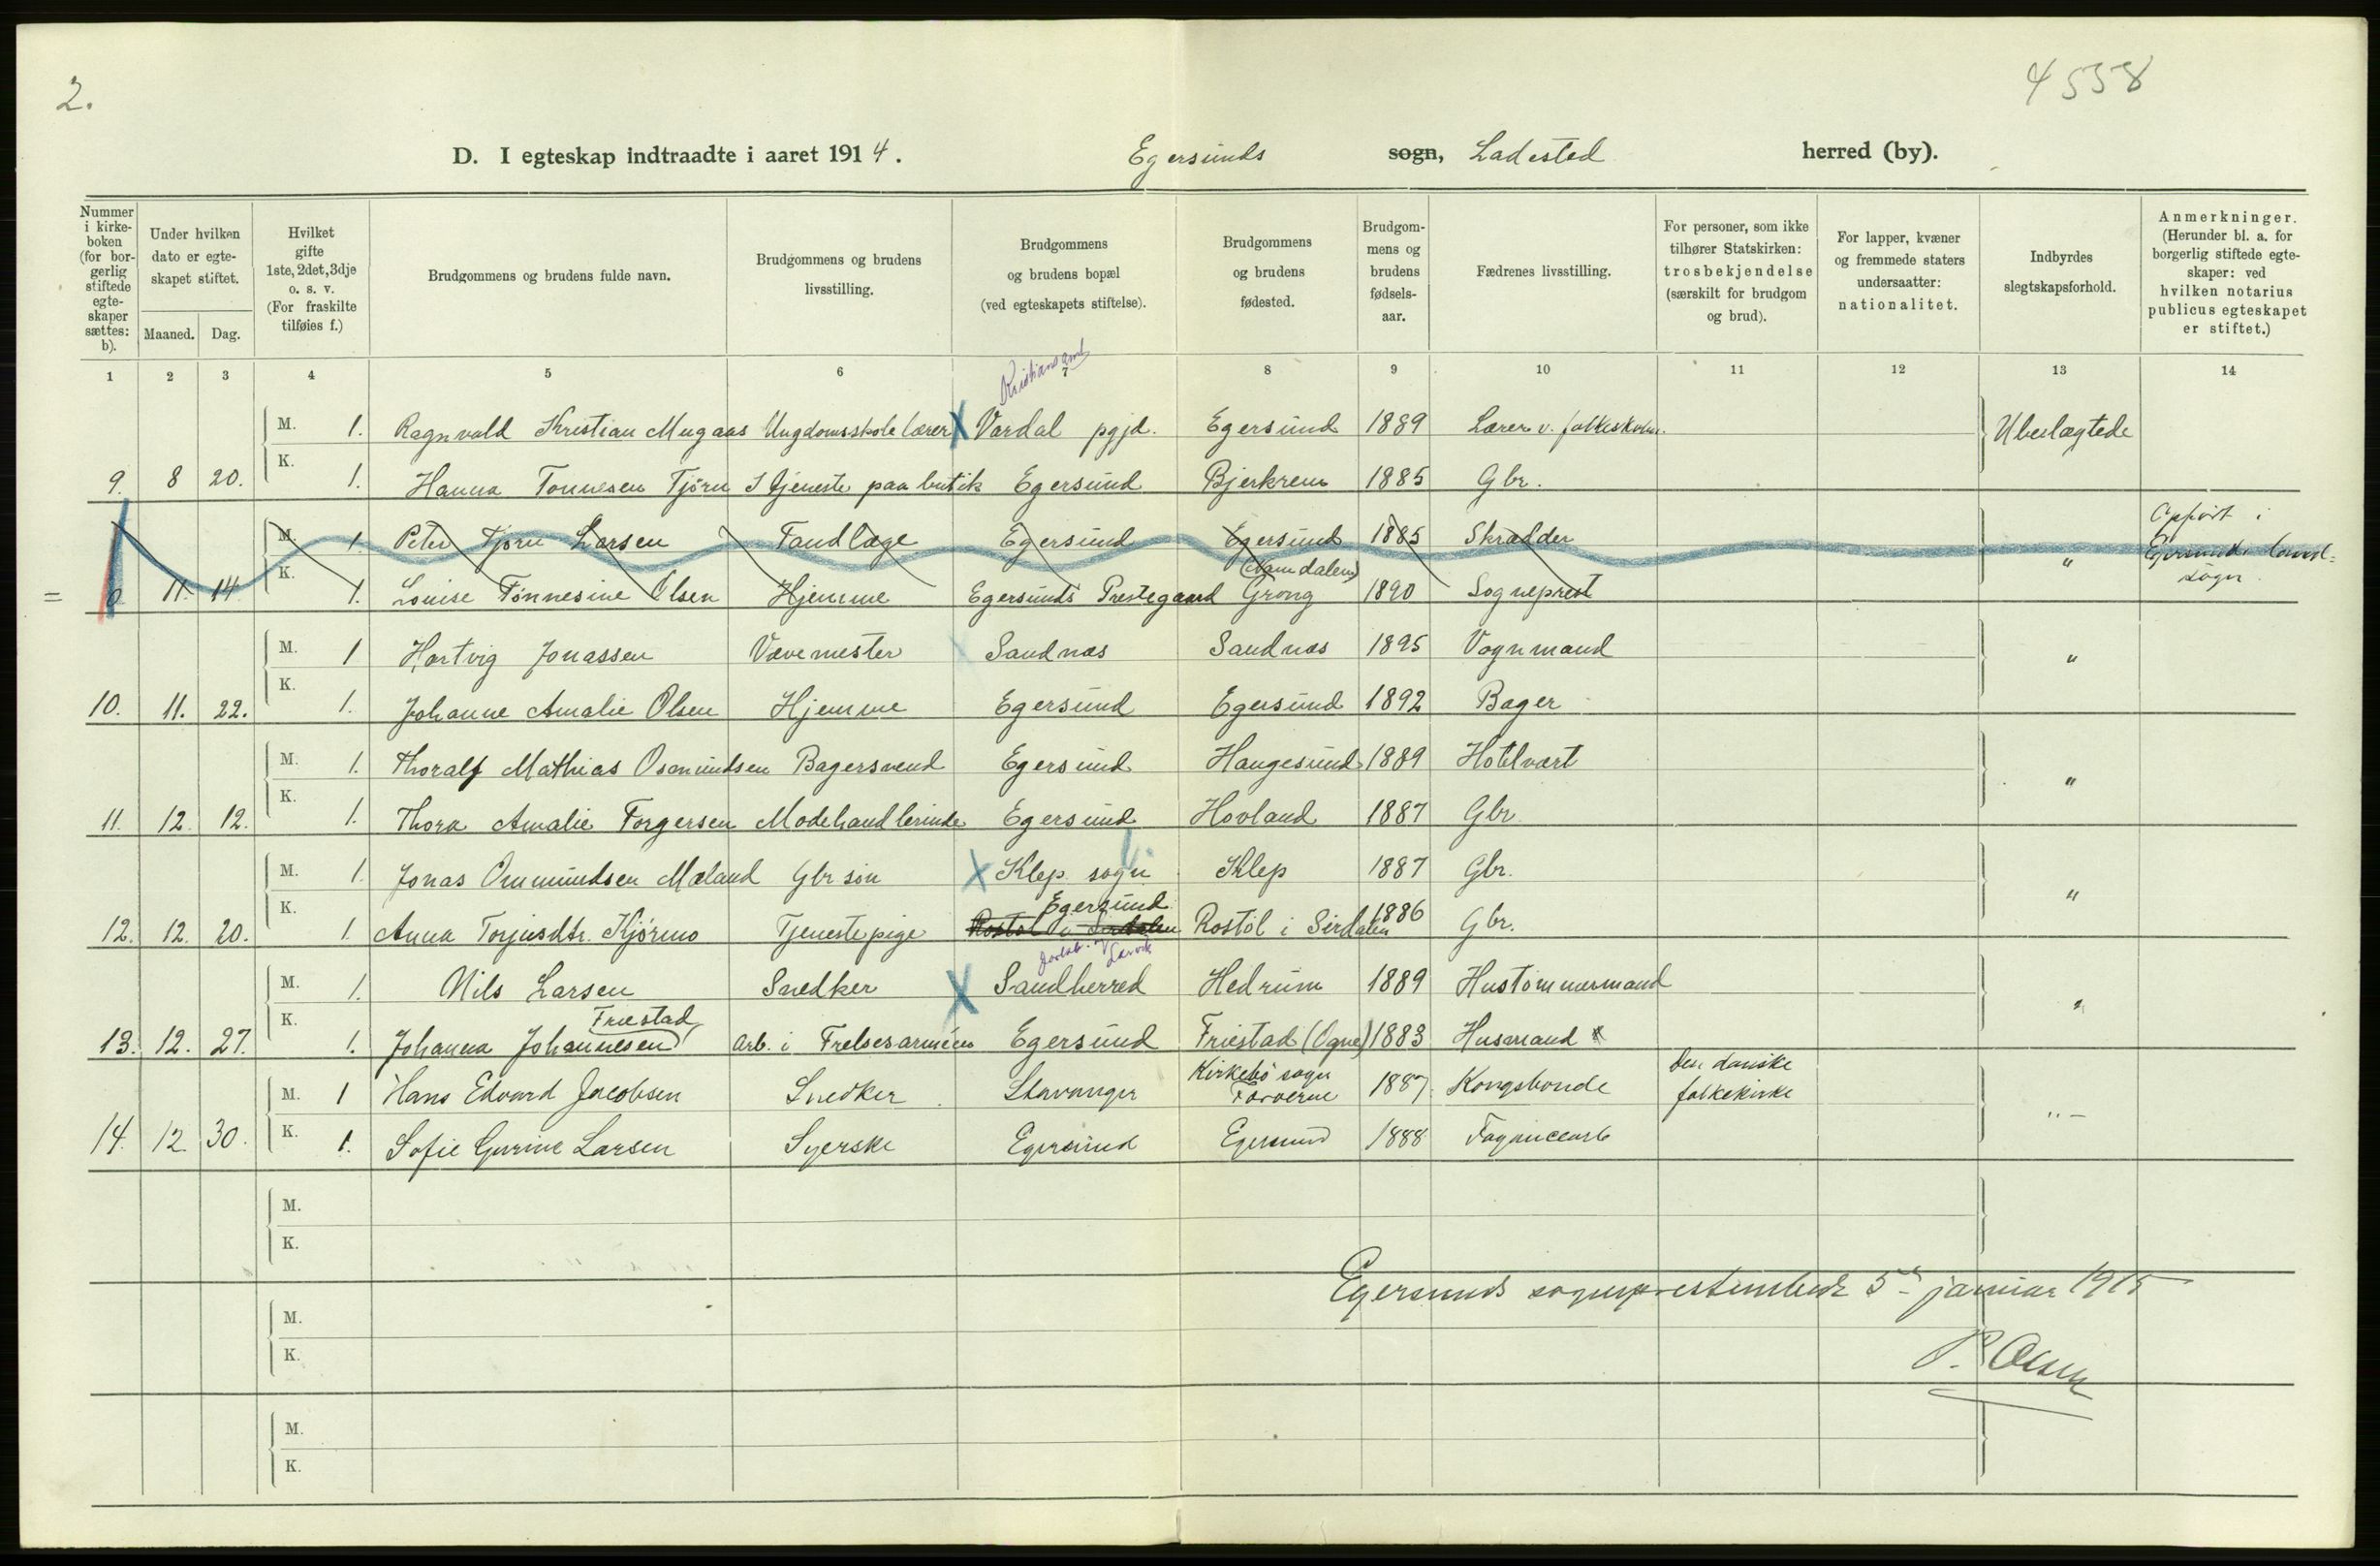 2.
4558
D. I egteskap indtraadte i aaret 1914. Egersunds sogn, Ladested herred (by).
Nummer i kirkeboken (for borgerlig stiftede egteskaper sættes: b).
Under hvilken dato er egteskapet stiftet.
Maaned. Dag.
Hvilket gifte 1ste, 2det, 3dje o. s. v. (For fraskilte tilføies f.)
Brudgommens og brudens fulde navn.
Brudgommens og brudens livsstilling.
Brudgommens og brudens bopæl (ved egteskapets stiftelse).
Brudgommens og brudens fødested.
Brudgommens og brudens fødselsaar.
Fædrenes livsstilling.
For personer, som ikke tilhører Statskirken: trosbekjendelse (særskilt for brudgom og brud).
For lapper, kvæner og fremmede staters undersaatter: nationalitet.
Indbyrdes slegtskapsforhold.
Anmerkninger. (Herunder bl. a. for borgerlig stiftede egteskaper: ved hvilken notarius publicus egteskapet er stiftet.)
1 2 3 4 5 6 7 8 9 10 11 12 13 14
Kristians amt
M. 1. Ragnvald Kristian Mugaas Ungdomsskolelærer X Vardal pgjd. Egersund 1889 Lærer v. folkeskolen. Ubeslægtede
9. 8 20. K. 1. Hanna Tønnesen Tjörn I tjeneste paa butik Egersund Bjerkrem 1885 Gbr.
M. 1. Peter Tjörn Larsen Tandlæge Egersund Egersund 1885 Skrædder " Opført i Egersunds landsogn.
= 11. 14. K. 1. Louise Tönnesine Olsen Hjemme Egersunds Prestegaard Grong (Namdalen) 1890 Sogneprest
M. 1 Hartvig Jonassen Vævemester Sandnæs Sandnæs 1895 Vognmand "
10. 11. 22. K. 1. Johanne Amalie Olsen Hjemme Egersund Egersund 1892 Bager
M. 1. Thoralf Mathias Osmundsen Bagersvend Egersund Haugesund 1889 Hotelvært "
11. 12. 12. K. 1. Thora Amalie Torgersen Modehandlerinde Egersund Hovland 1887 Gbr.
M. 1. Jonas Ommundsen Mæland Gbr søn X Klep sogn Klep 1887 Gbr. "
Egersund
12. 12. 20. K. 1. Anna Torjusdtr. Kjörmo Tjenestepige Rostöl i Sirdalen Rostöl i Sirdalen 1886 Gbr.
Jarlsb. Larvik
M. 1. Nils Larsen Snedker X Sandherred Hedrum 1889 Hustömmermand "
Friestad
13. 12. 27. K. 1. Johanna Johannesen Arb. i Frelsesarmeen Egersund Friestad (Ogne) 1883 Husmand
M. 1 Hans Edvard Jacobsen Snedker Stavanger Kirkebö sogn Færøerne 1887. Kongsbonde Den danske folkekirke " -
14. 12 30. K. 1. Sofie Gurine Larsen Syerske Egersund Egersund 1888
M.
K.
M.
K.
M.
K.
Egersunds sogneprestembede 5te januar 1915
P. Olsen